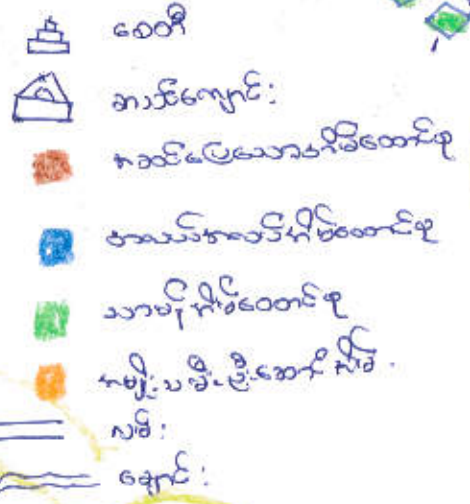 စေတီ
စာသင်ကျောင်း
အဆင်ပြေသောအိမ်ထောင်စု
အလယ်အလတ်အိမ်ထောင်စု
သာမန်အိမ်ထောင်စု
အမျိုးသမီးဦးဆောင်အိမ်
လမ်း
ချောင်း